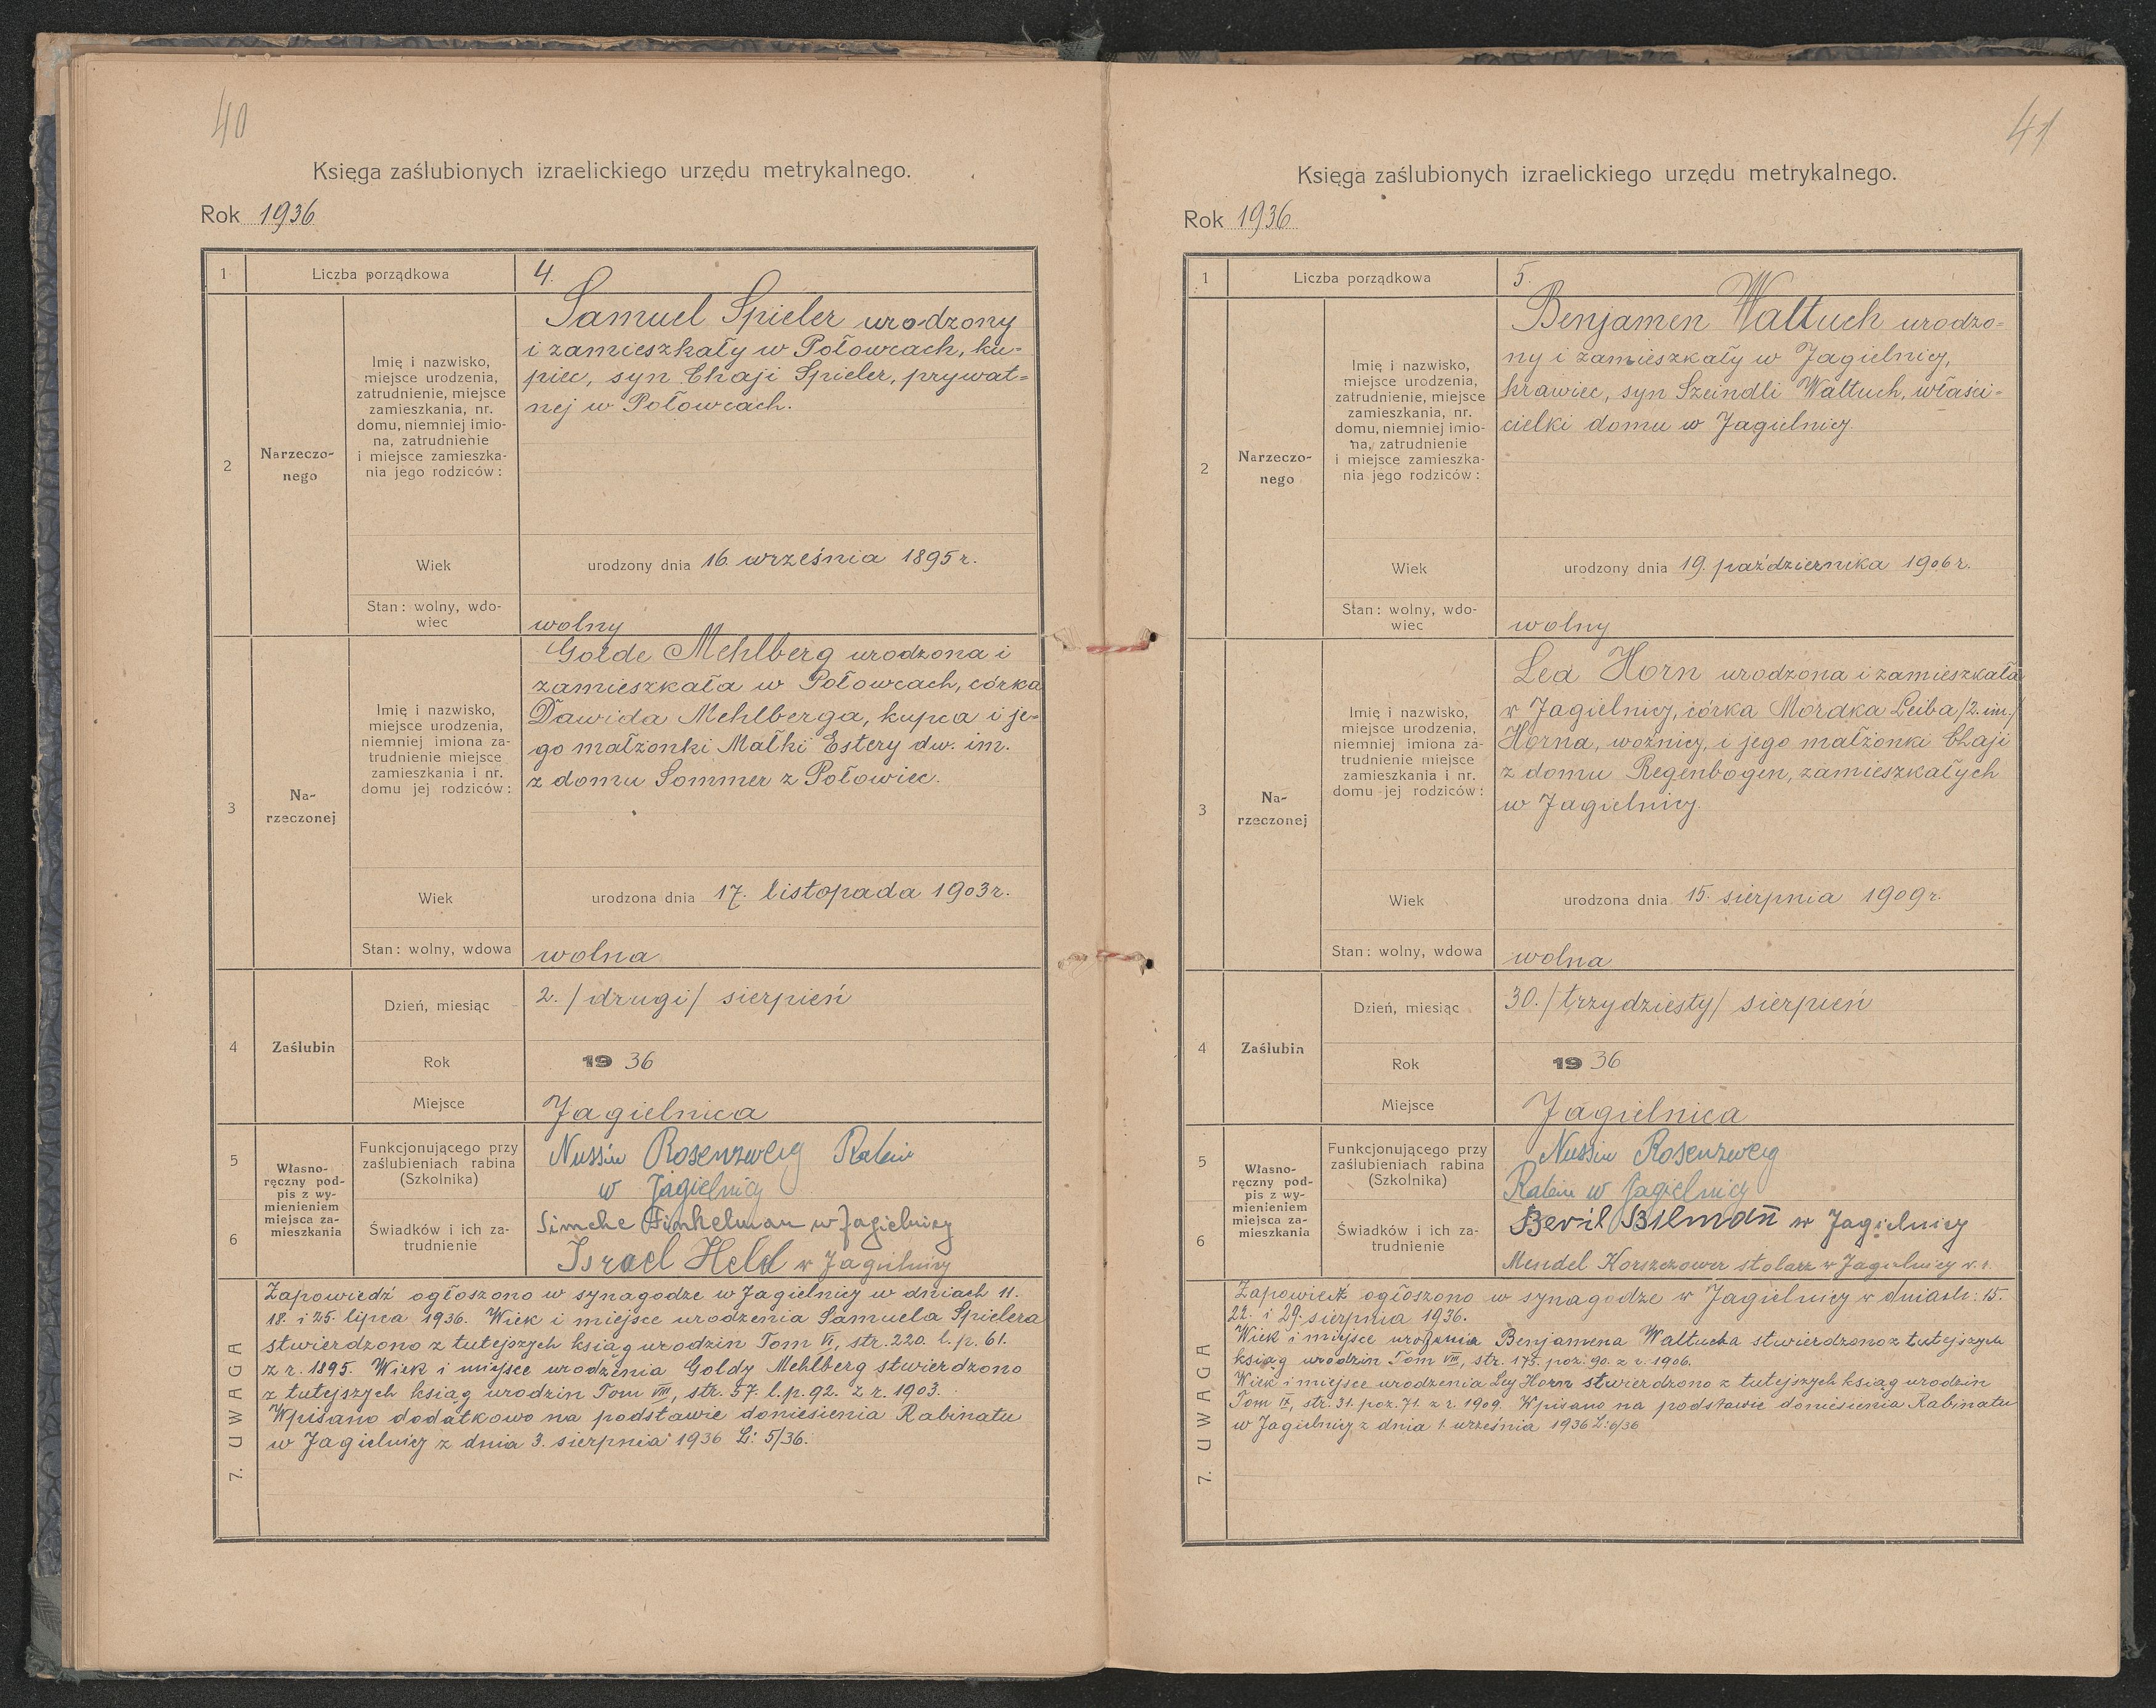 40
Księga zaślubionych izraelickiego urzędu metrykalnego.
Rok 1936
1
Liczba porządkowa
4.
2
Narzeczo-
nego
Imię i nazwisko,
miejsce urodzenia,
zatrudnienie, miejsce
zamieszkania, nr.
domu, niemniej imio-
na, zatrudnienie
i miejsce zamieszka-
nia jego rodziców:
Samuel Spieler urodzony
i zamieszkały w Połowcach, ku-
piec, syn Chaji Spieler, prywat=
nej w Połowcach.
Wiek
urodzony dnia 16. września 1895 r.
Stan: wolny, wdo-
wiec
wolny
3
Na-
rzeczonej
Imię i nazwisko,
miejsce urodzenia,
niemniej imiona za-
trudnienie miejsce
zamieszkania i nr.
domu jej rodziców:
Golde Mehlberg urodzona i
zamieszkała w Połowcach, córka
Dawida Mehlberga, kupca i je-
go małżonki Małki Estery dw. im.
z domu Sommer z Połowiec.
Wiek
urodzona dnia 17. listopada 1903 r.
Stan: wolny, wdowa
wolna
4
Zaślubin
Dzień, miesiąc
2. /drugi/ sierpień
Rok
1936
Miejsce
Jagielnica
5
Własno-
ręczny pod-
pis z wy-
mienieniem
miejsca za-
mieszkania
Funkcjonującego przy
zaślubieniach rabina
(Szkolnika)
Nussin Rosenzweig Rabin
w Jagielnicy
6
Świadków i ich za-
trudnienie
Simche Finkelman w Jagielnicy
Israel Held w Jagielnicy
7. UWAGA
Zapowiedź ogłoszono w synagodze w Jagielnicy w dniach 11.
18. i 25. lipca 1936. Wiek i miejsce urodzenia Samuela Spielera
stwierdzono z tutejszych ksiąg urodzin Tom VI, str. 220. l. p. 61.
z r. 1895. Wiek i miejsce urodzenia Goldy Mehlberg stwierdzono
z tutejszych ksiąg urodzin Tom VIII, str. 57. l. p. 92. z r. 1903.
Wpisano dodatkowo na podstawie doniesienia Rabinatu
w Jagielnicy z dnia 3. sierpnia 1936 L: 5/36.
41
Księga zaślubionych izraelickiego urzędu metrykalnego.
Rok 1936
1
Liczba porządkowa
5.
2
Narzeczo-
nego
Imię i nazwisko,
miejsce urodzenia,
zatrudnienie, miejsce
zamieszkania, nr.
domu, niemniej imio-
na, zatrudnienie
i miejsce zamieszka-
nia jego rodziców:
Benjamen Waltuch urodzo=
ny i zamieszkały w Jagielnicy,
krawiec, syn Szeindli Waltuch, właści=
cielki domu w Jagielnicy.
Wiek
urodzony dnia 19. października 1906 r.
Stan: wolny, wdo-
wiec
wolny
3
Na-
rzeczonej
Imię i nazwisko,
miejsce urodzenia,
niemniej imiona za-
trudnienie miejsce
zamieszkania i nr.
domu jej rodziców:
Lea Horn urodzona i zamieszkała
w Jagielnicy, córka Mordka Leiba /2. im./
Horna, woźnicy, i jego małżonki Chaji
z domu Regenbogen, zamieszkałych
w Jagielnicy.
Wiek
urodzona dnia 15. sierpnia 1909 r.
Stan: wolny, wdowa
wolna
4
Zaślubin
Dzień, miesiąc
30. /trzydziesty/ sierpień
Rok
1936
Miejsce
Jagielnica
5
Własno-
ręczny pod-
pis z wy-
mienieniem
miejsca za-
mieszkania
Funkcjonującego przy
zaślubieniach rabina
(Szkolnika)
Nussin Rosenzweig
Rabin w Jagielnicy
6
Świadków i ich za-
trudnienie
Beril Bilman w Jagielnicy
Mendel Korszczower stolarz w Jagielnicy
7. UWAGA
Zapowiedź ogłoszono w synagodze w Jagielnicy w dniach: 15.
22. i 29. sierpnia 1936.
Wiek i miejsce urodzenia Benjamena Waltucha stwierdzono z tutejszych
ksiąg urodzin Tom VIII, str. 175. poz. 90. z r. 1906.
Wiek i miejsce urodzenia Ley Horn stwierdzono z tutejszych ksiąg urodzin
Tom IX, str. 31. poz. 71. z r. 1909. Wpisano na podstawie doniesienia Rabinatu
w Jagielnicy z dnia 1. września 1936 L: 6/36